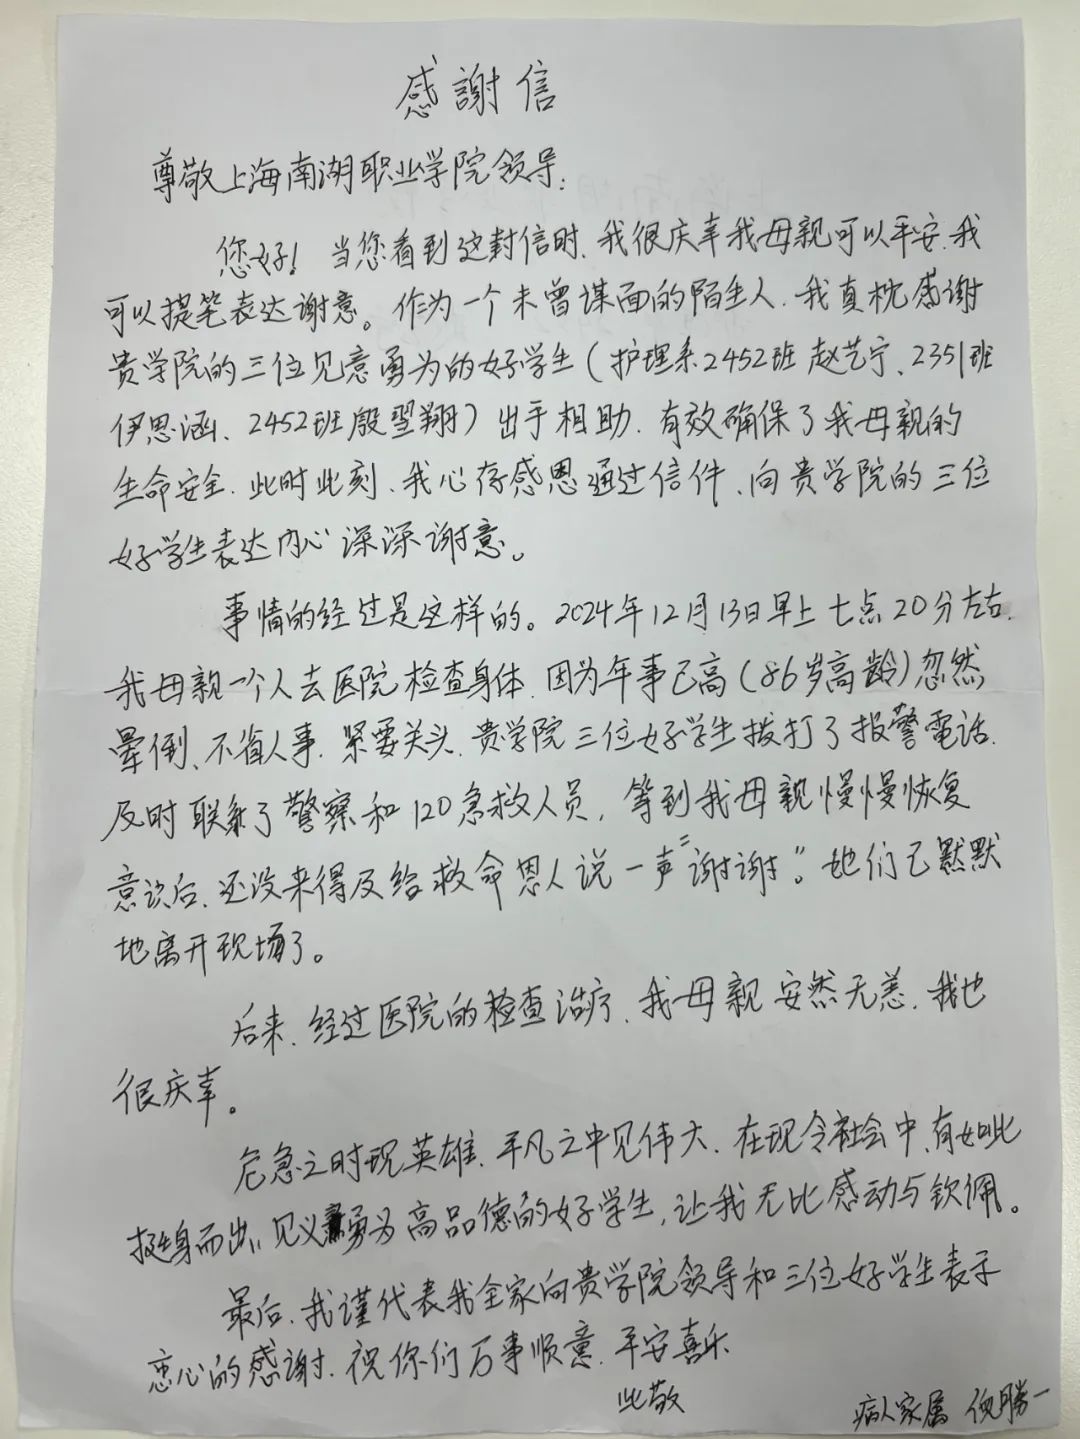 感謝信
尊敬上海南湖职业学院领导:
您好！当您看到这封信时、我很庆幸我母亲可以平安、我
可以提笔表达谢意。作为一个未曾谋面的陌生人、我真忱感谢
贵学院的三位见意勇为的好学生(护理系2452班赵艺宁、2351班
伊思涵、2452班殷翌翔)出手相助、有效确保了我母亲的
生命安全、此时此刻、我心存感恩通过信件、向贵学院的三位
好学生表达内心深深谢意。
事情的经过是这样的。2024年12月13日早上七点20分左右、
我母亲一个人去医院检查身体、因为年事已高(86岁高龄)忽然
晕倒、不省人事、紧要关头、贵学院三位好学生拨打了报警電话、
及时联系了警察和120急救人员,等到我母亲慢慢恢复
意识后、还没来得及给救命恩人说一声“谢谢”。她们已默默
地离开现场了。
后来、经过医院的检查治疗、我母亲安然无恙、我也
很庆幸。
危急之时现英雄、平凡之中见伟大、在现今社会中、有如此
挺身而出、见义勇为高品德的好学生,让我无比感动与钦佩。
最后、我谨代表我全家向贵学院领导和三位好学生表示
衷心的感谢、祝你们万事顺意、平安喜乐
此敬
病人家属 倪勝一